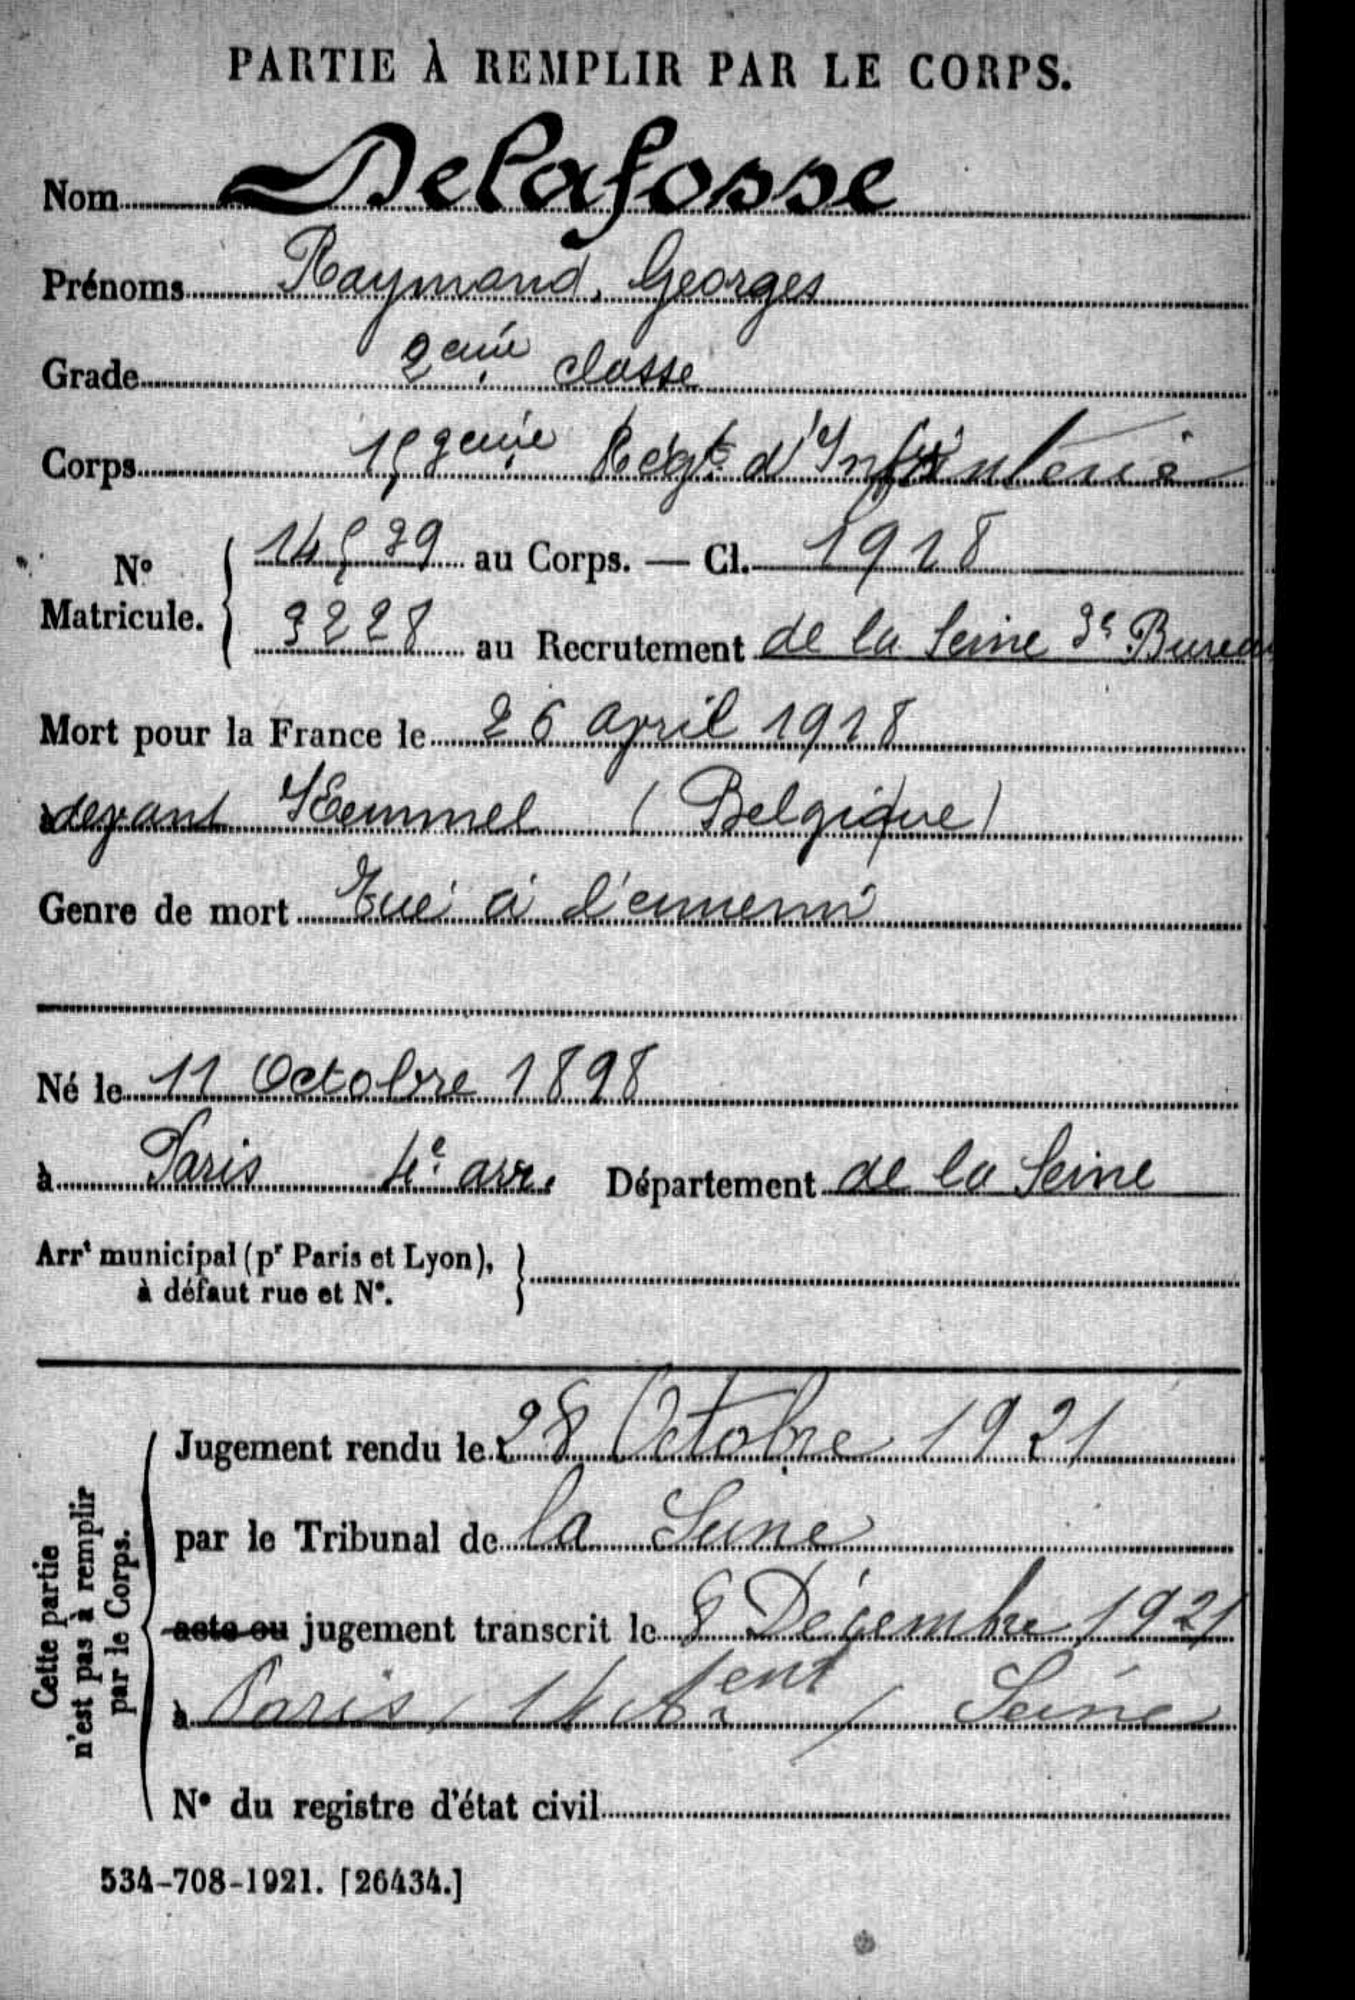 PARTIE À REMPLIR PAR LE CORPS.
Nom Delafosse
Prénoms Raymond, Georges
Grade 2eme classe
Corps Regt d'Infanterie
N° Matricule. 14579 au Corps. — Cl. 1918
3228 au Recrutement de la Seine 3e Bureau
Mort pour la France le 26 april 1918
devant Kemmel (Belgique)
Genre de mort Tué à l'ennemi
Né le 11 Octobre 1898
à Paris 4e arr. Département de la Seine
Arrt municipal (pr Paris et Lyon),
à défaut rue et N°.
Cette partie
n'est pas à remplir
par le Corps.
Jugement rendu le 28 Octobre 1921
par le Tribunal de la Seine
acte ou jugement transcrit le 8 Décembre 1921
à Paris, 14 Arent / Seine
N° du registre d'état civil
534-708-1921. [26434.]